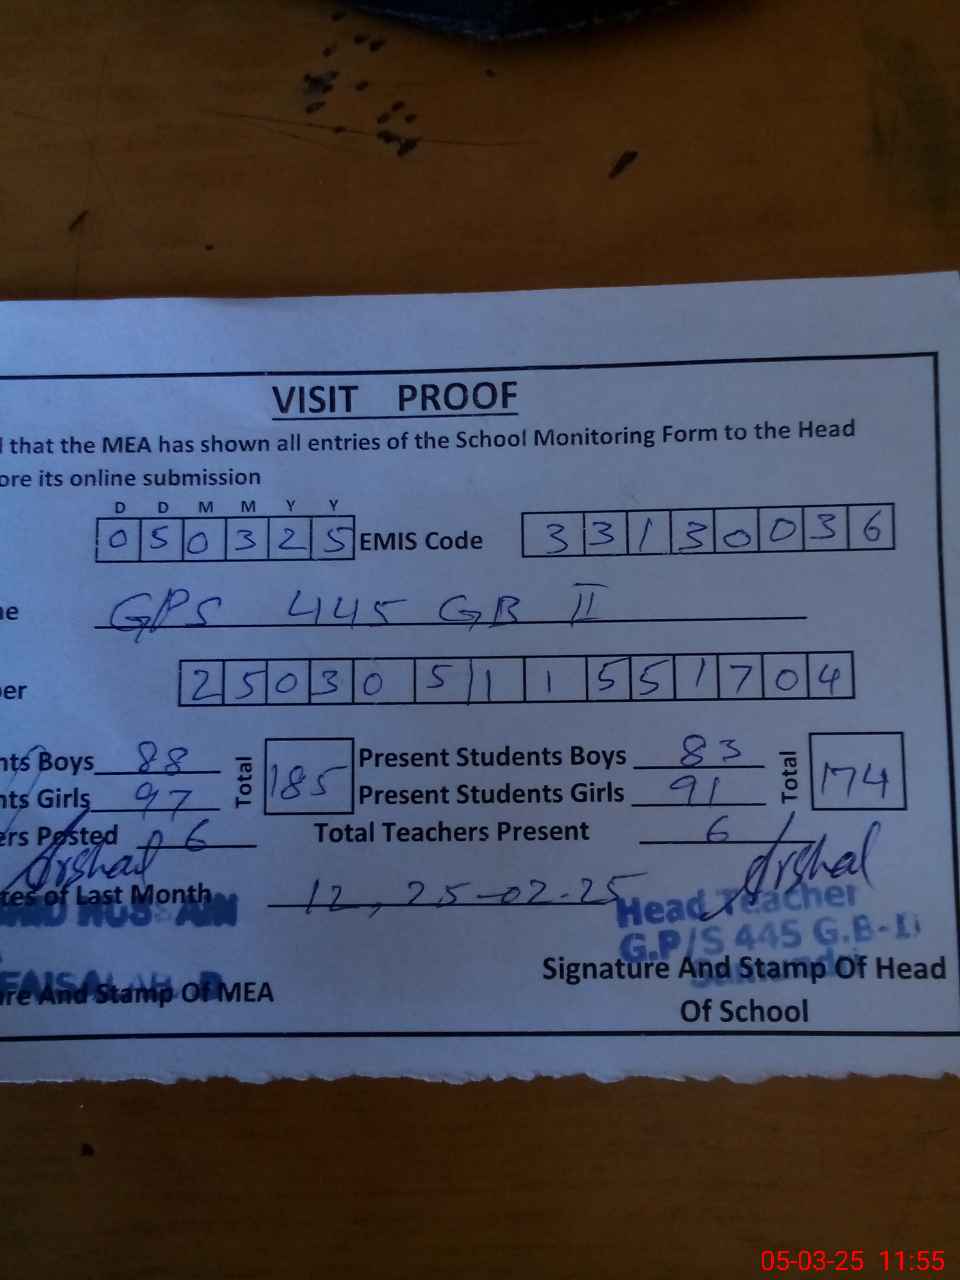 VISIT PROOF
that the MEA has shown all entries of the School Monitoring Form to the Head
ore its online submission
D D M M Y Y
0 5 0 3 2 5 EMIS Code 3 3 1 3 0 0 3 6
GPS 445 GB II
2 5 0 3 0 5 1 1 5 5 1 7 0 4
nts Boys 88 Total 185 Present Students Boys 83 Total 174
nts Girls 97 Present Students Girls 91
ers Posted 6 Total Teachers Present 6
Arshad Arshad
tes of Last Month 12, 25-02-25
Head Teacher
G.P/S 445 G.B-II
FAISALABAD
re And Stamp Of MEA Signature And Stamp Of Head
Of School
05-03-25 11:55